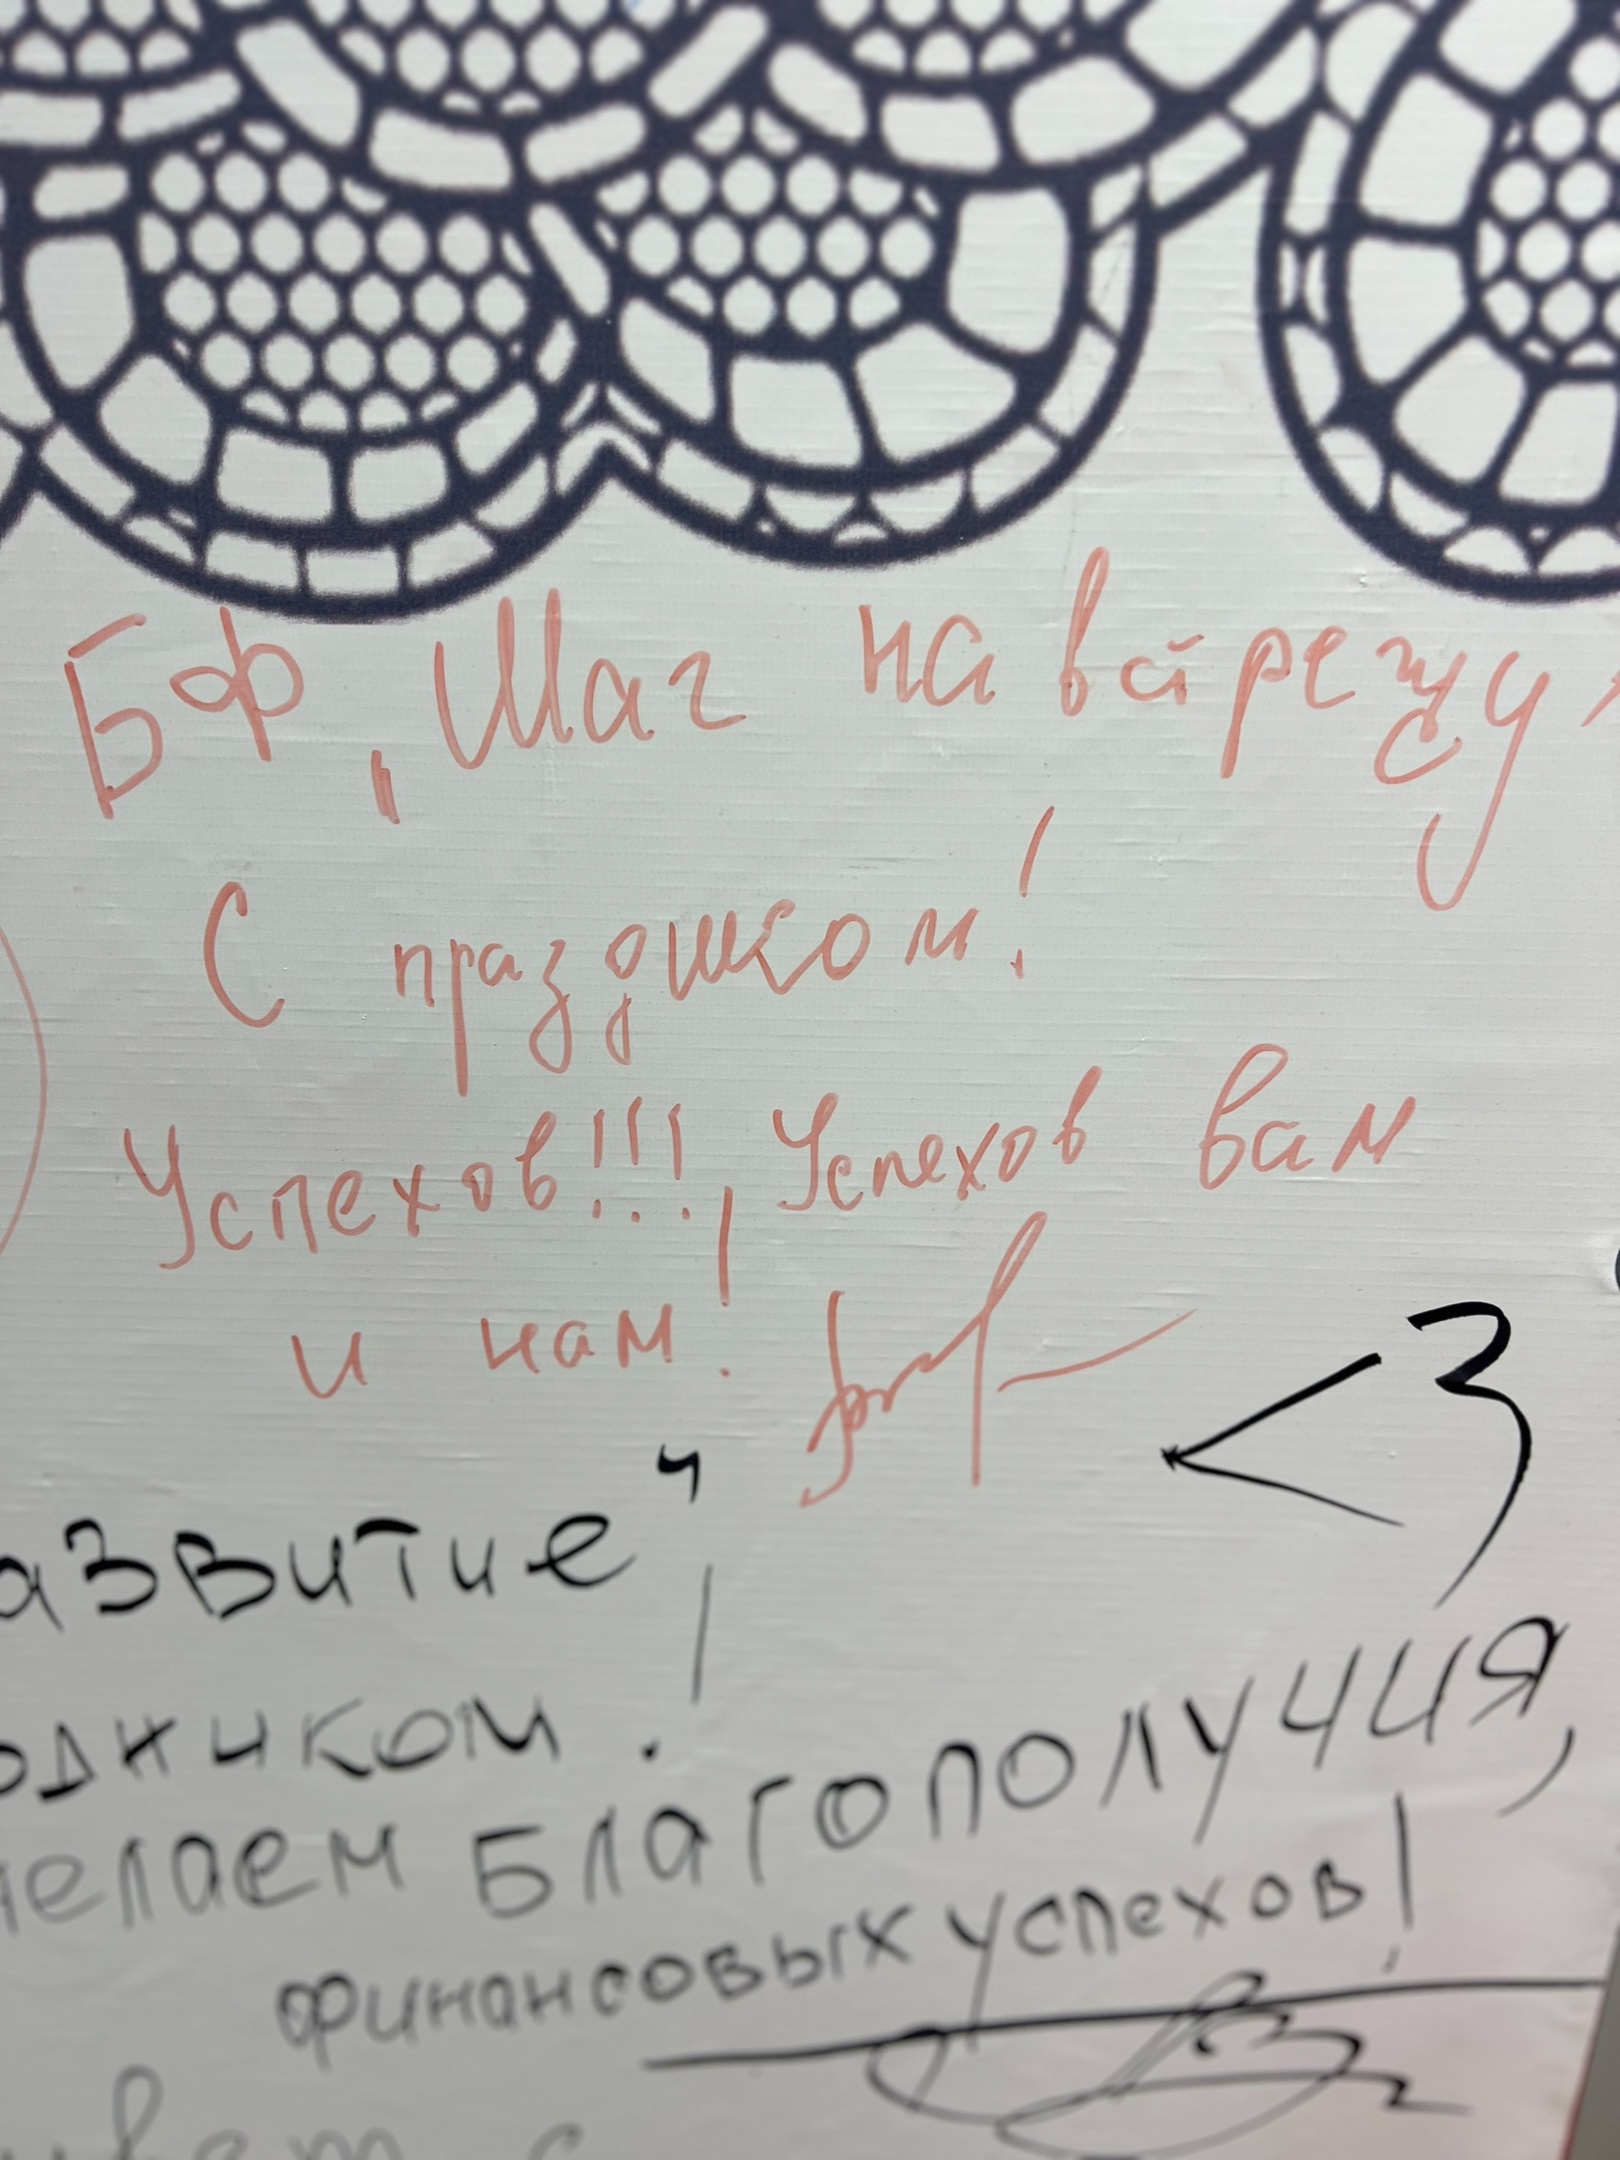 БФ „Шаг на встречу"
С праздником!
Успехов!!! Успехов вам
и нам!
<3
азвитие"
одником!
елаем Благополучия,
финансовых успехов!